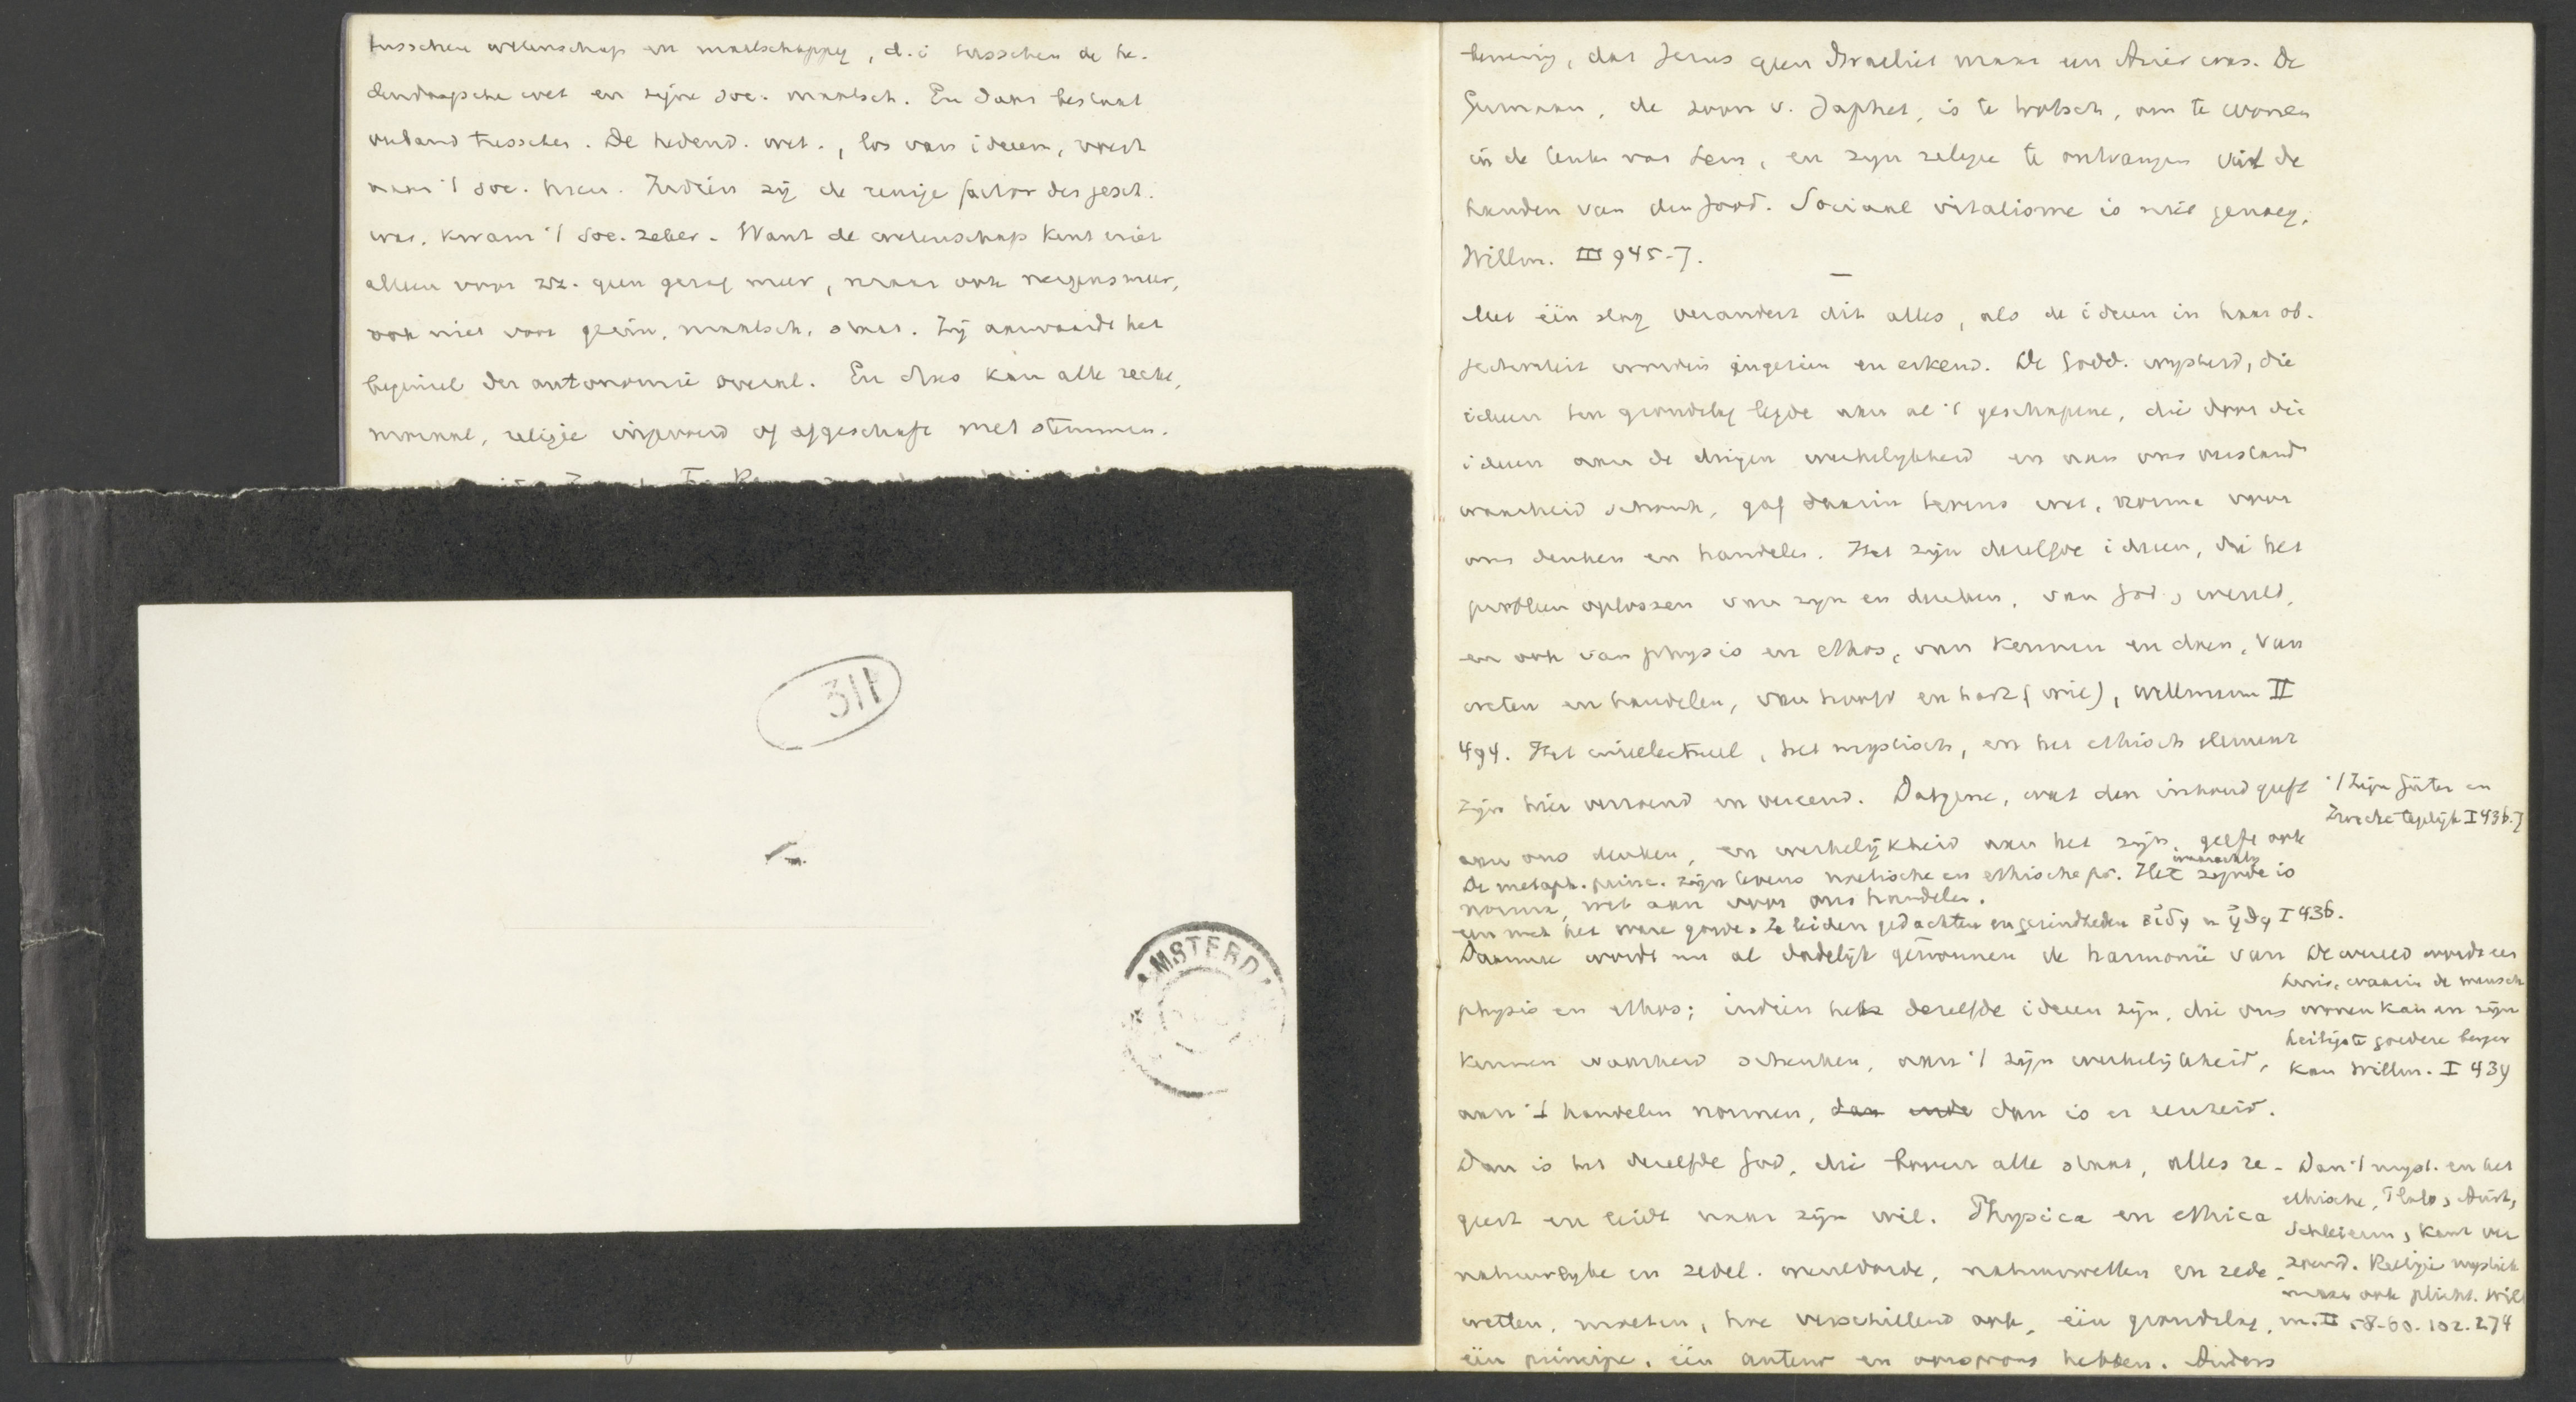 tusschen wetenschap en maatschappij, d.i. tusschen de he-
dendaagsche wet en zijne soc. maatsch. En daar bestaat
verband tusschen. De hedend. wet., los van ideeen, voert
naar 't soc. heen. Indien zij de eenige factor der gesch.
was, kwam 't soc. zeker. Want de wetenschap kent niet
alleen voor zz. geen gezag meer, maar ook nergens meer,
ook niet voor gezin, maatsch, staat. Zij aanvaardt het
beginsel der autonomie overal. En dus kan alle recht,
moraal, religie ingevoerd of afgeschaft met stemmen.
311
AMSTERDA
bewering, dat Jezus geen Israeliet maar een Arier was. De
Germaan, de zoon v. Japhet, is te trotsch, om te wonen
in de tenten van Sem, en zijn religie te ontvangen uit de
handen van den Jood. Sociaal vitalisme is niet genoeg.
Willm. III 945-7.
Met één slag verandert dit alles, als de ideeen in haar ob-
jectiviteit worden ingezien en erkend. De Godd. wysheid, die
ideeen ten grondslag legde aan al 't geschapene, die door die
ideeen aan de dingen werkelykheid en aan ons verstand
waarheid schonk, gaf daarin tevens wet, norma voor
ons denken en handelen. Het zijn dezelfde ideeen, die het
probleem oplossen van zyn en denken, van God, wereld,
en ook van physis en ethos, van kennen en doen, van
weten en handelen, van hoofd en hart (wil), Willmann II
494. Het intellectueel, het mystisch, en het ethisch element
zijn hier verzoend en vereend. Datgene, wat den inhoud geeft
't Zijn Güter en
Zwecke tegelijk I 436.7
aan ons denken, en werkelijkheid aan het zijn, geeft ook
De metaph. princ. zijn tevens noëtische en ethische pr. Het waarachtig zijnde is
norma, wet aan voor ons handelen.
een met het ware goede. Ze leiden gedachten en gezindheden I 436.
Daarmee wordt nu al dadelijk gewonnen de harmonie van
De wereld wordt een
huis, waarin de mensch
physis en ethos; indien het dezelfde ideeen zijn, die ons
wonen kan en zijn
heiligste goederen bergen
kennen waarheid schenken, aan 't zijn werkelijkheid,
kan Willm. I 439
aan 't handelen normen, dan dan is er eenheid.
Dan is het dezelfde God, die boven alle staat, alles re-
Dan 't myst. en het
ethische, Plato, Arist,
geert en leidt naar zijn wil. Physica en ethica
Schleierm, Kant ver
natuurlyke en zedel. wereldorde, natuurwetten en zede-
zoend. Religie mystiek
maar ook plicht. Will
wetten, moeten, hoe verschillend ook, één grondslag,
m. II 58-60. 102. 274
één principe, één auteur en oorsprong hebben. Anders